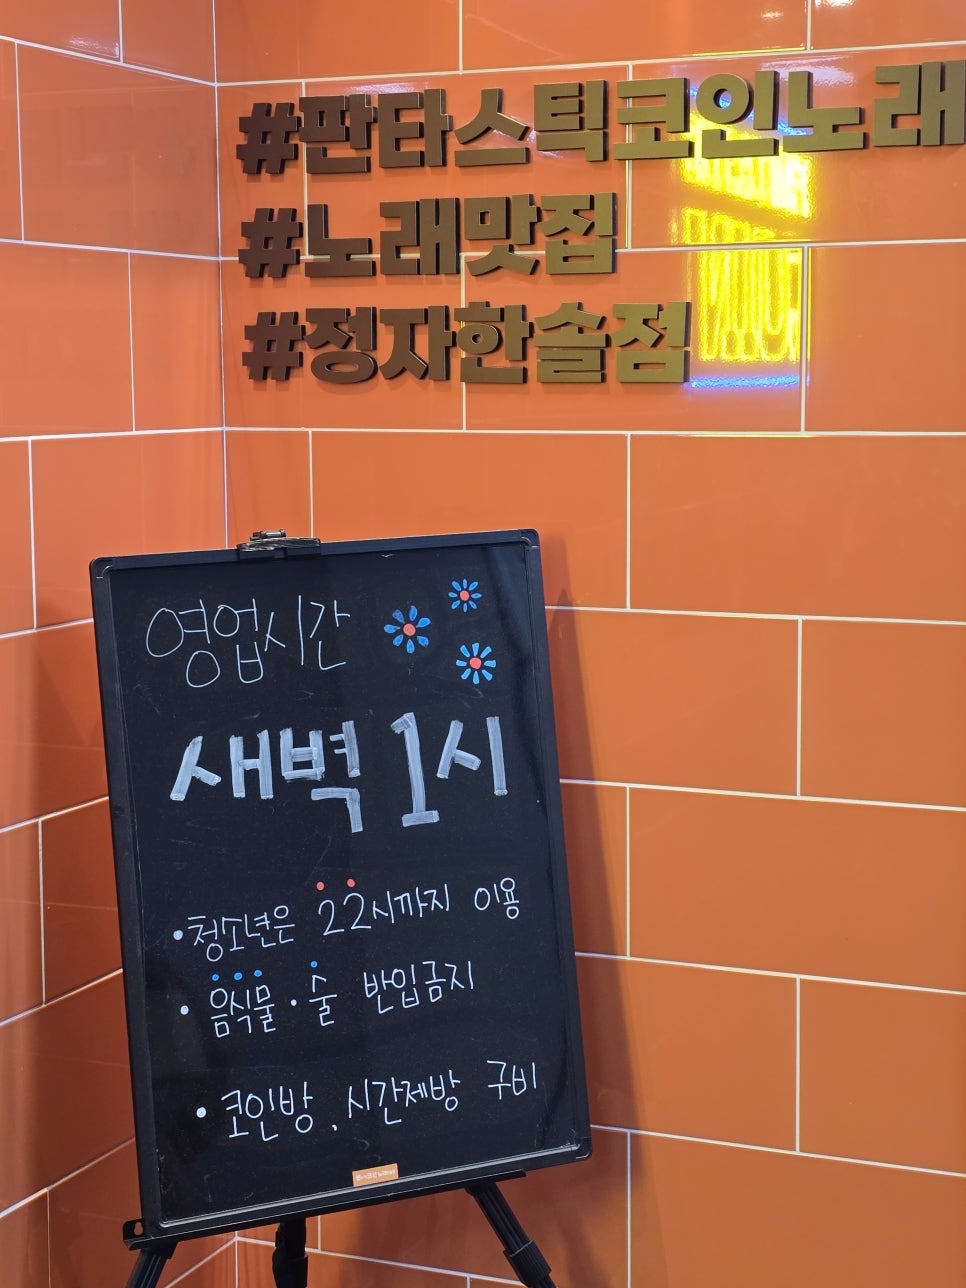 #판타스틱코인노래
#노래맛집
#정자한솔점
영업시간
새벽 1시
• 청소년은 22시까지 이용
• 음식물 · 술 반입금지
• 코인방, 시간제방 구비